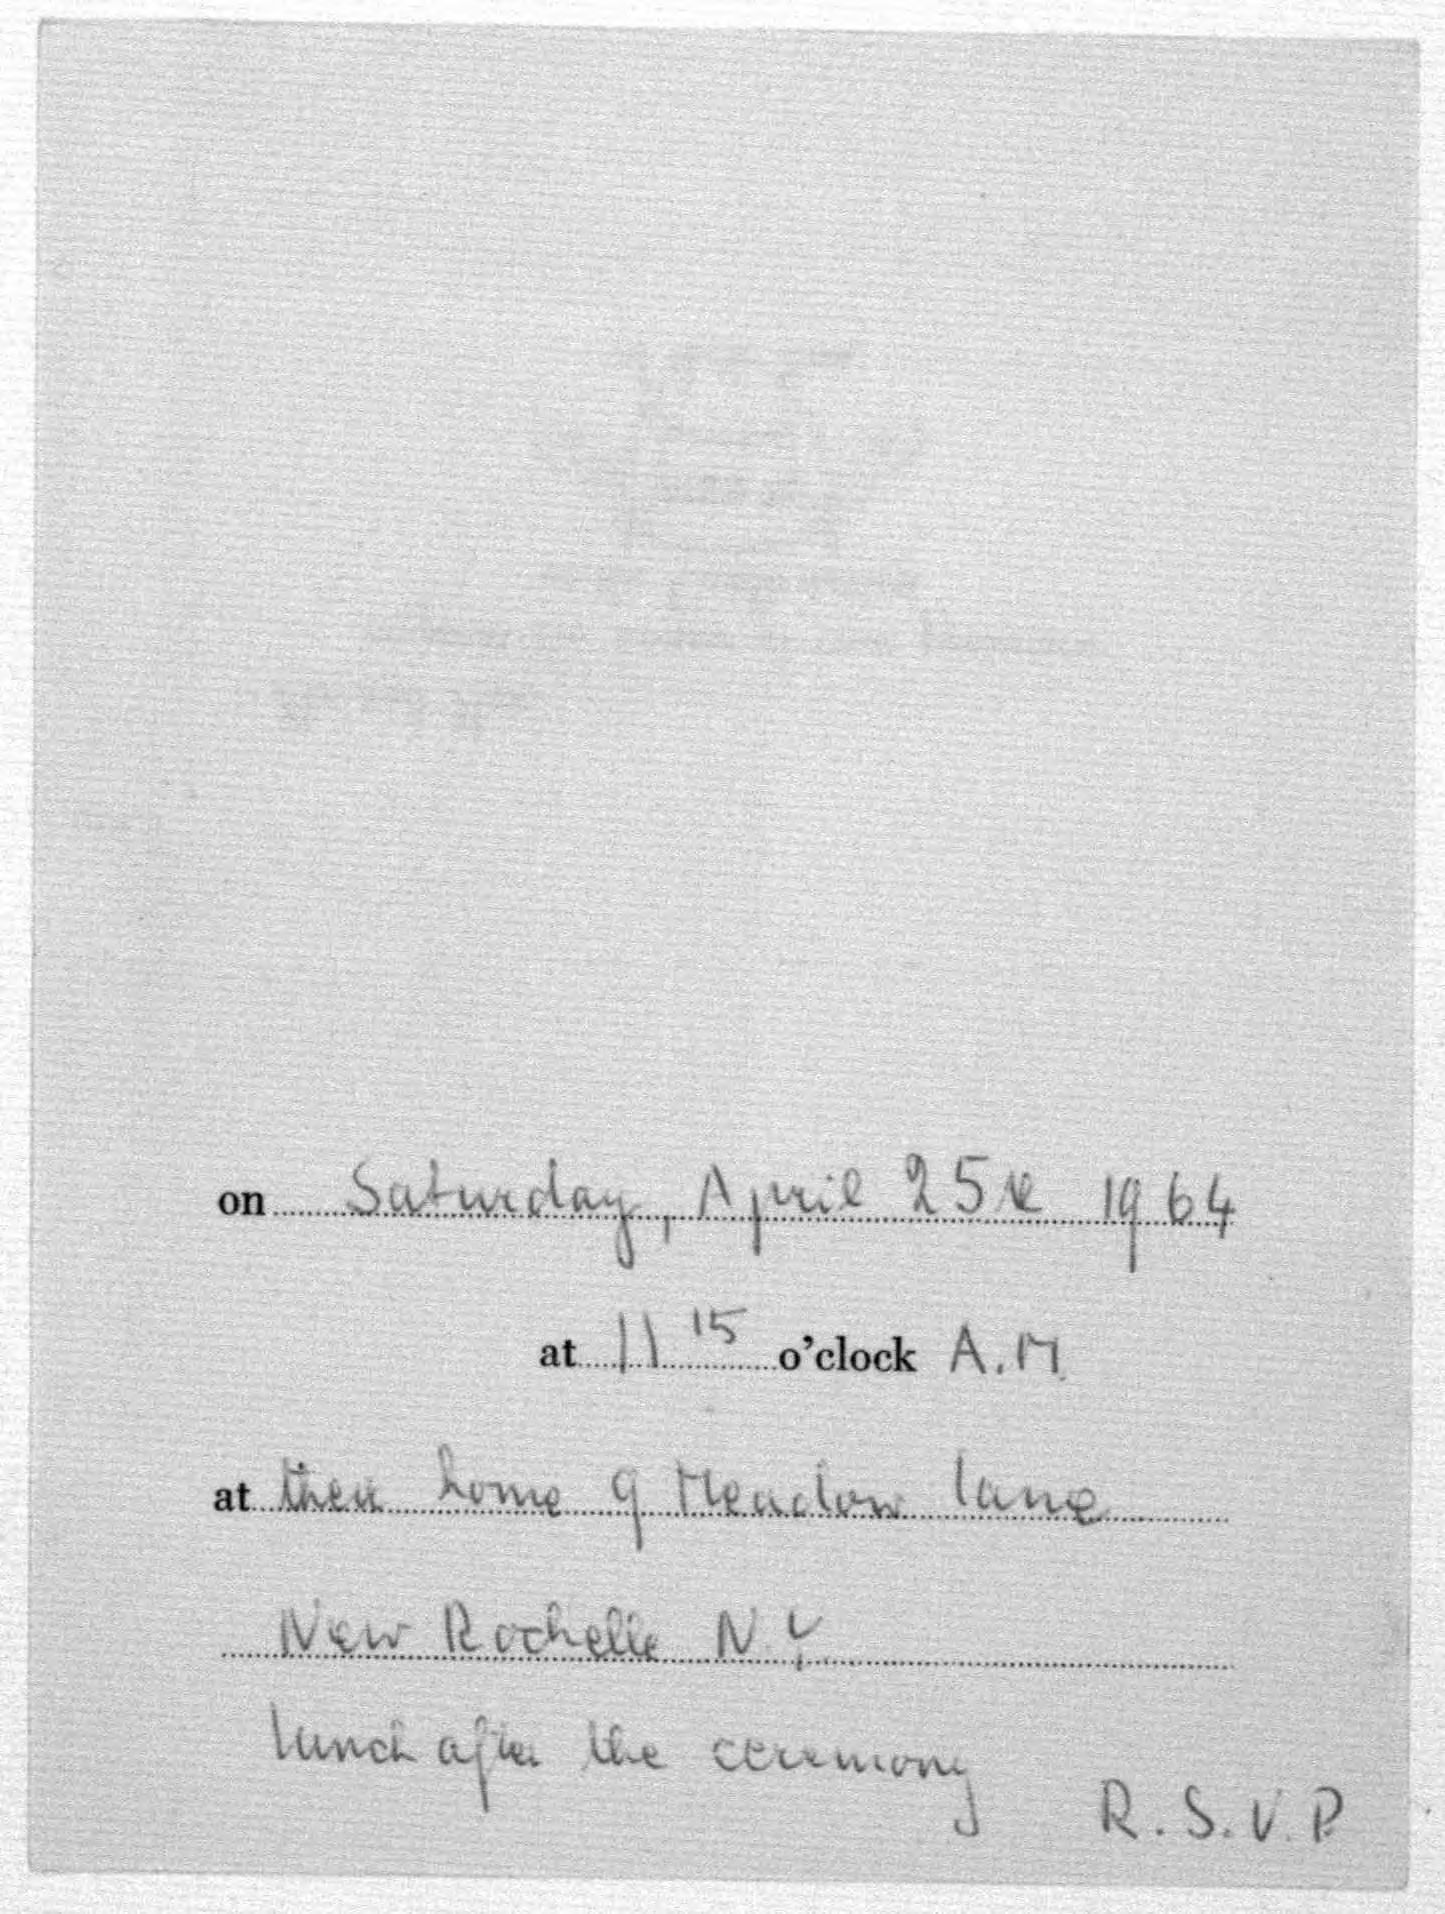 on Saturday, April 25th 1964
at 11 15 o'clock A.M.
at their home 9 Meadow lane
New Rochelle N.Y.
lunch after the ceremony
R.S.V.P